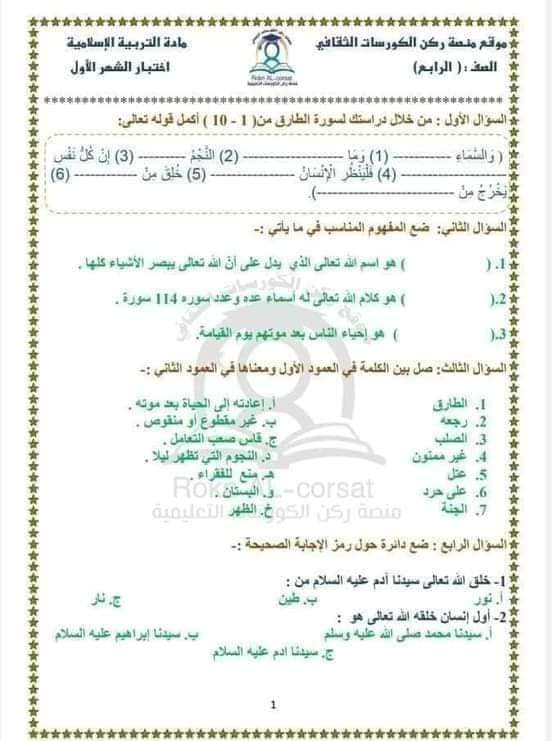 موقع منصة ركن الكورسات الثقافي
مادة التربية الإسلامية
الصف : ( الرابع )
اختبار الشهر الأول
Rokn AL-corsat
منصة ركن الكورسات التعليمية
************************************************************
السؤال الأول : من خلال دراستك لسورة الطارق من( 1 - 10 ) أكمل قوله تعالى:
( وَالسَّمَاءِ ----------- (1) وَمَا ------------------- (2) النَّجْمُ ----------- (3) إِنْ كُلُّ نَفْسٍ
-------------------- (4) فَلْيَنْظُرِ الْإِنْسَانُ ---------------- (5) خُلِقَ مِنْ ------------ (6)
يَخْرُجُ مِنْ --------------------------).
السؤال الثاني: ضع المفهوم المناسب في ما يأتي :-
1. ( ) هو اسم الله تعالى الذي يدل على أنّ الله تعالى يبصر الأشياء كلها .
2.( ) هو كلام الله تعالى له أسماء عده وعدد سوره 114 سورة .
3.( ) هو إحياء الناس بعد موتهم يوم القيامة.
السؤال الثالث: صل بين الكلمة في العمود الأول ومعناها في العمود الثاني :-
1. الطارق أ. إعادته إلى الحياة بعد موته .
2. رجعه ب. غير مقطوع أو منقوص .
3. الصلب ج. قاس صعب التعامل .
4. غير ممنون د. النجوم التي تظهر ليلا .
5. عتل هـ. منع للفقراء .
6. على حرد و. البستان .
7. الجنة خ. الظهر
Rokn AL-corsat
منصة ركن الكورسات التعليمية
السؤال الرابع : ضع دائرة حول رمز الإجابة الصحيحة :-
1- خلق الله تعالى سيدنا آدم عليه السلام من :
أ. نور ب. طين ج. نار
2- أول إنسان خلقه الله تعالى هو :
أ. سيدنا محمد صلى الله عليه وسلم ب. سيدنا إبراهيم عليه السلام
ج. سيدنا ادم عليه السلام
1